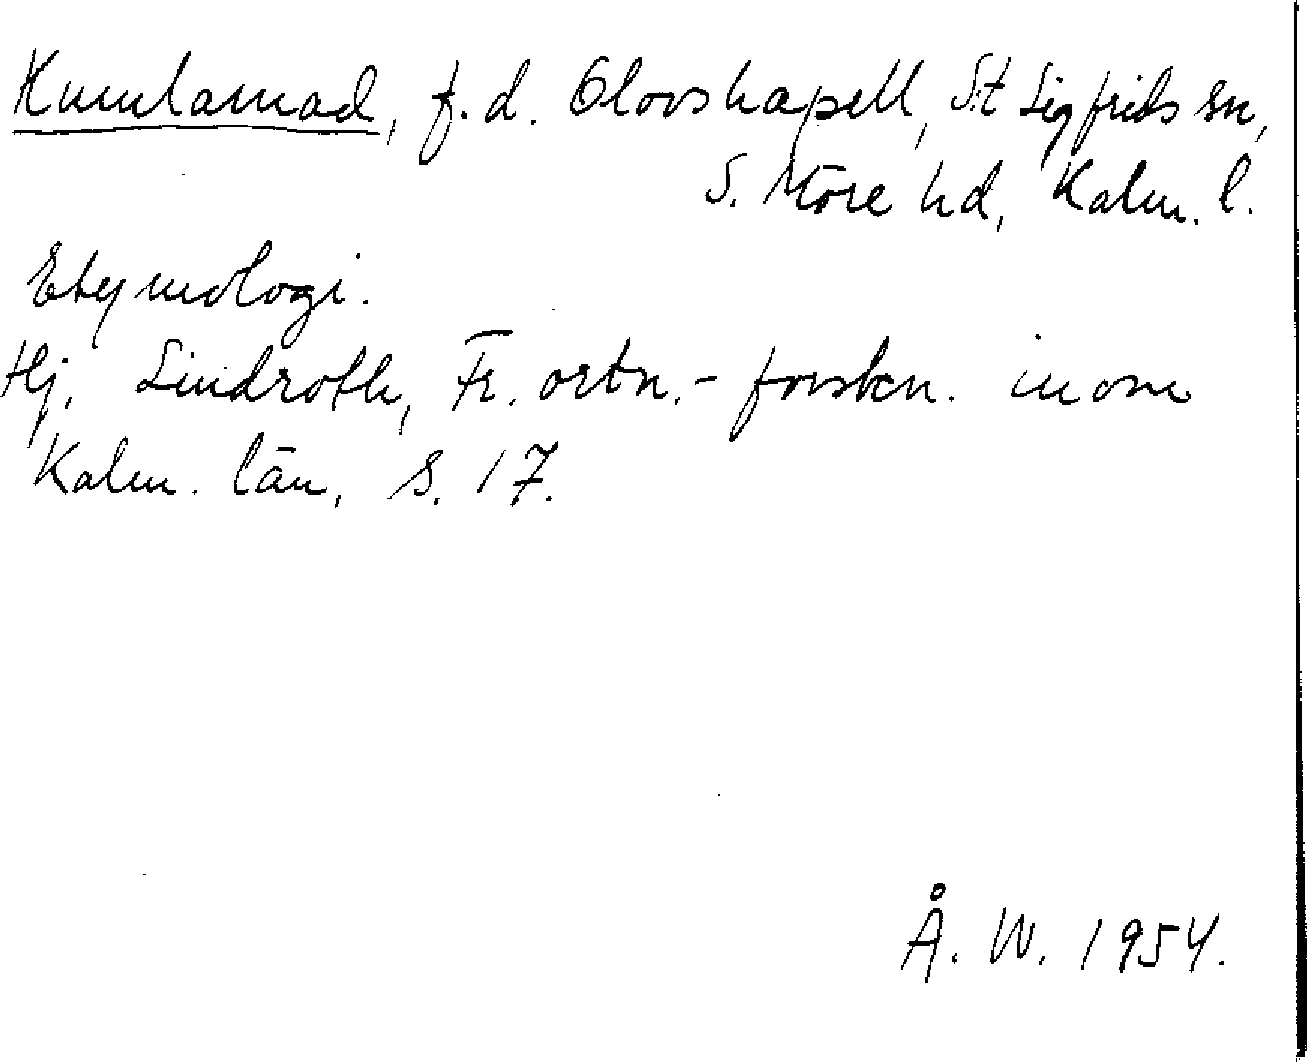 Kumlamad, f.d. Olovskapell, S:t Sigfrids sn,
S. Möre hd, Kalm. l.
Etymologi.
Hj. Lindroth, Fr. ortn.-forskn. inom
Kalm. län, s. 17.
Å. W. 1954.